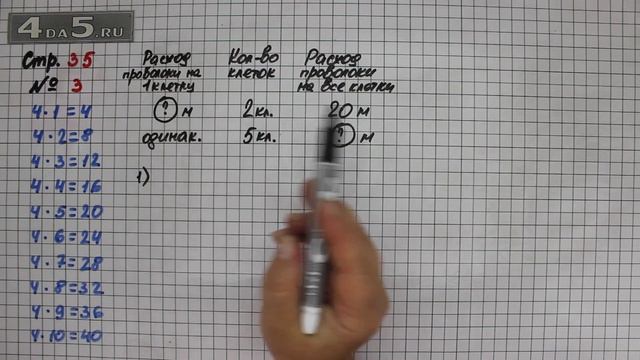 4DA5.RU
Стр. 35
№ 3
4·1=4
4·2=8
4·3=12
4·4=16
4·5=20
4·6=24
4·7=28
4·8=32
4·9=36
4·10=40
Расход проволоки на 1 клетку
Кол-во клеток
Расход проволоки на все клетки
? м 2 кл. 20 м
одинак. 5 кл. ? м
1)